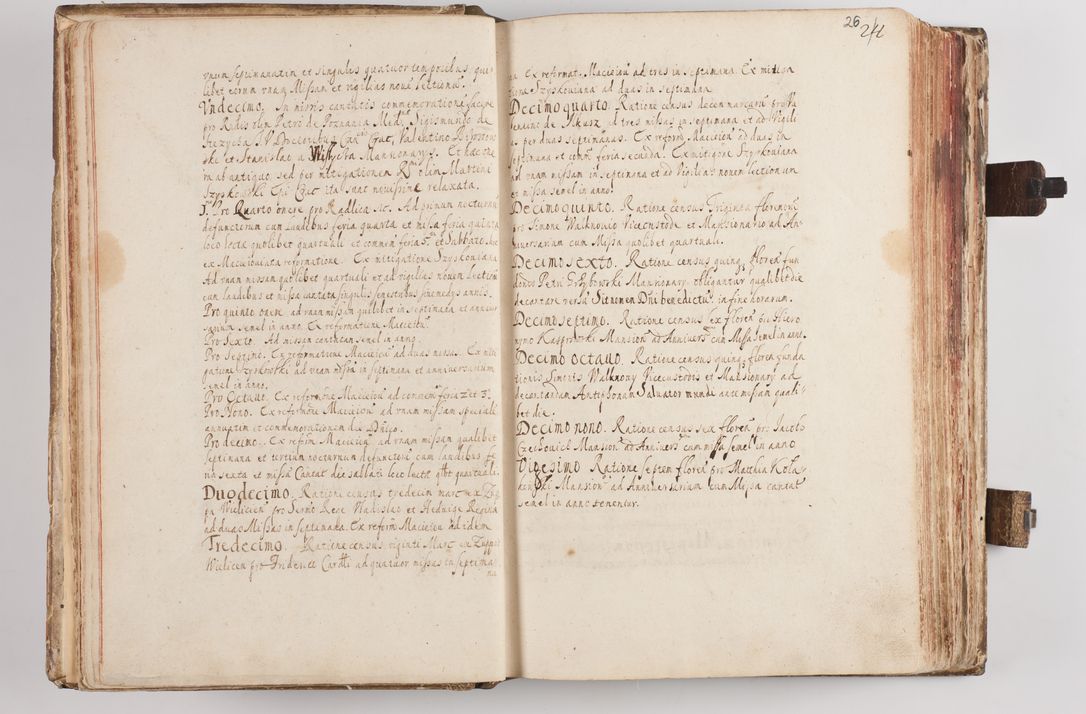 vnum septimanatim et singulis quatuor temporibus quo
libet eorum vnam Missam et vigilias noue Lectionu
Vndecimo. In missis cantatis commemorationem facere
pro Rndis olim Petro de Poznania Med. Sigismundo de
Stezycza I.V. Doctoribus Can Crac, Valentino
ski et Stanislao a Mansionarys. Et hae
ab antiquo, sed per mitigationem olim Martini
Szyskowski Epi Crac ita sunt nouissime relaxata.
Pro Quarto onere pro Radlica etc. Ad primum nocturnu
defunctorum cum Laudibus feria quarta et missa feria quinta
loco lecta quolibet quartuali et commem feria 5 et Sabbato
ex Macieiouiana reformatione. Ex mitigatione Szyskouiana
Ad vnam missam quolibet quartuali et ad vigilias nouem Lectionu
cum laudibus et missa cantata singulis
Pro quinto onere ad vnam missam quolibet in septimana et anniuer
sarium semel in anno. Ex reformatione Macieiou
Pro Sexto. Ad missam cantatam semel in anno.
Pro Septimo. Ex reformatione Macieiou ad duas missas. Ex miti
gatione Szyskowski ad vnam missa in septimana et anniuersarium
semel in anno.
Pro Octauo. Ex reformone Macieiou ad commem feria 2 et 3.
Pro Nono. Ex reformone Macieiou ad vnam missam speciali
annuatim et commemorationem die Dnico.
Pro decimo. Ex reform Macieiou ad vnam missam qualibet
septimana et tertium nocturnum defunctoru cum laudibus fe
ria sexta et missa Cantat die sabbati loco lectae quartuali.
Duodecimo. Ratione census tredecim marc ex Zup
pa Wielicen pro Sermo Rege Vladislao et Hedwige Regina
ad duas Missas in septimana. Ex reform Macieiou ad idem
Tredecimo. Ratione census viginti Marc ex Zuppa
Wielicen pro Frideric Cardli ad quatuor missas in septima
na
26
24
na Ex reformat. Macieiou ad tres in septimana. Ex mitiga
tione Szyskouiana ad duas in septimana.
Decimoquarto. Ratione census decem marcaru
uenient de Ilkusz ad tres missas in septimana et ad Vigili
as per duas septimanas. Ex reform Macieiou ad duas in
septimana et comm feria secunda. Ex mitigone Szyskouiana
ad vnam missam in septimana et ad Vigilias nouem lectionum
et missa semel in anno.
Decimoquinto. Ratione census Triginta florenoru
pro Simone Walknouio Vicecustode et Mansionario ad An
niuersarium cum Missa quolibet quartuali.
Decimosexto. Ratione census quinq floren fun
donis Petri Grzybowski Mansionary. obligantur qualibet die
decantare versu Sit nomen Dni benedictu in fine horarum.
Decimoseptimo. Ratione census sex floren pro Hiero
nymo Kasprowski Mansion ad Anniuers cum Missa semel in anno.
Decimo octauo. Ratione census quinq floren funda
tionis Simonis Walknouy Vicecustodis et Mansionary ad
decantandam Antiphonam Saluator mundi ante missam quali
bet die.
Decimo nono. Ratione census sex floren pro Jacobo
Czechouich Mansion ad Anniuers cum missa semel in anno
Vigesimo Ratione septem floren pro Matthia Kola
czski Mansion ad Anniuersarium cum Missa cantat
semel in anno tenentur.